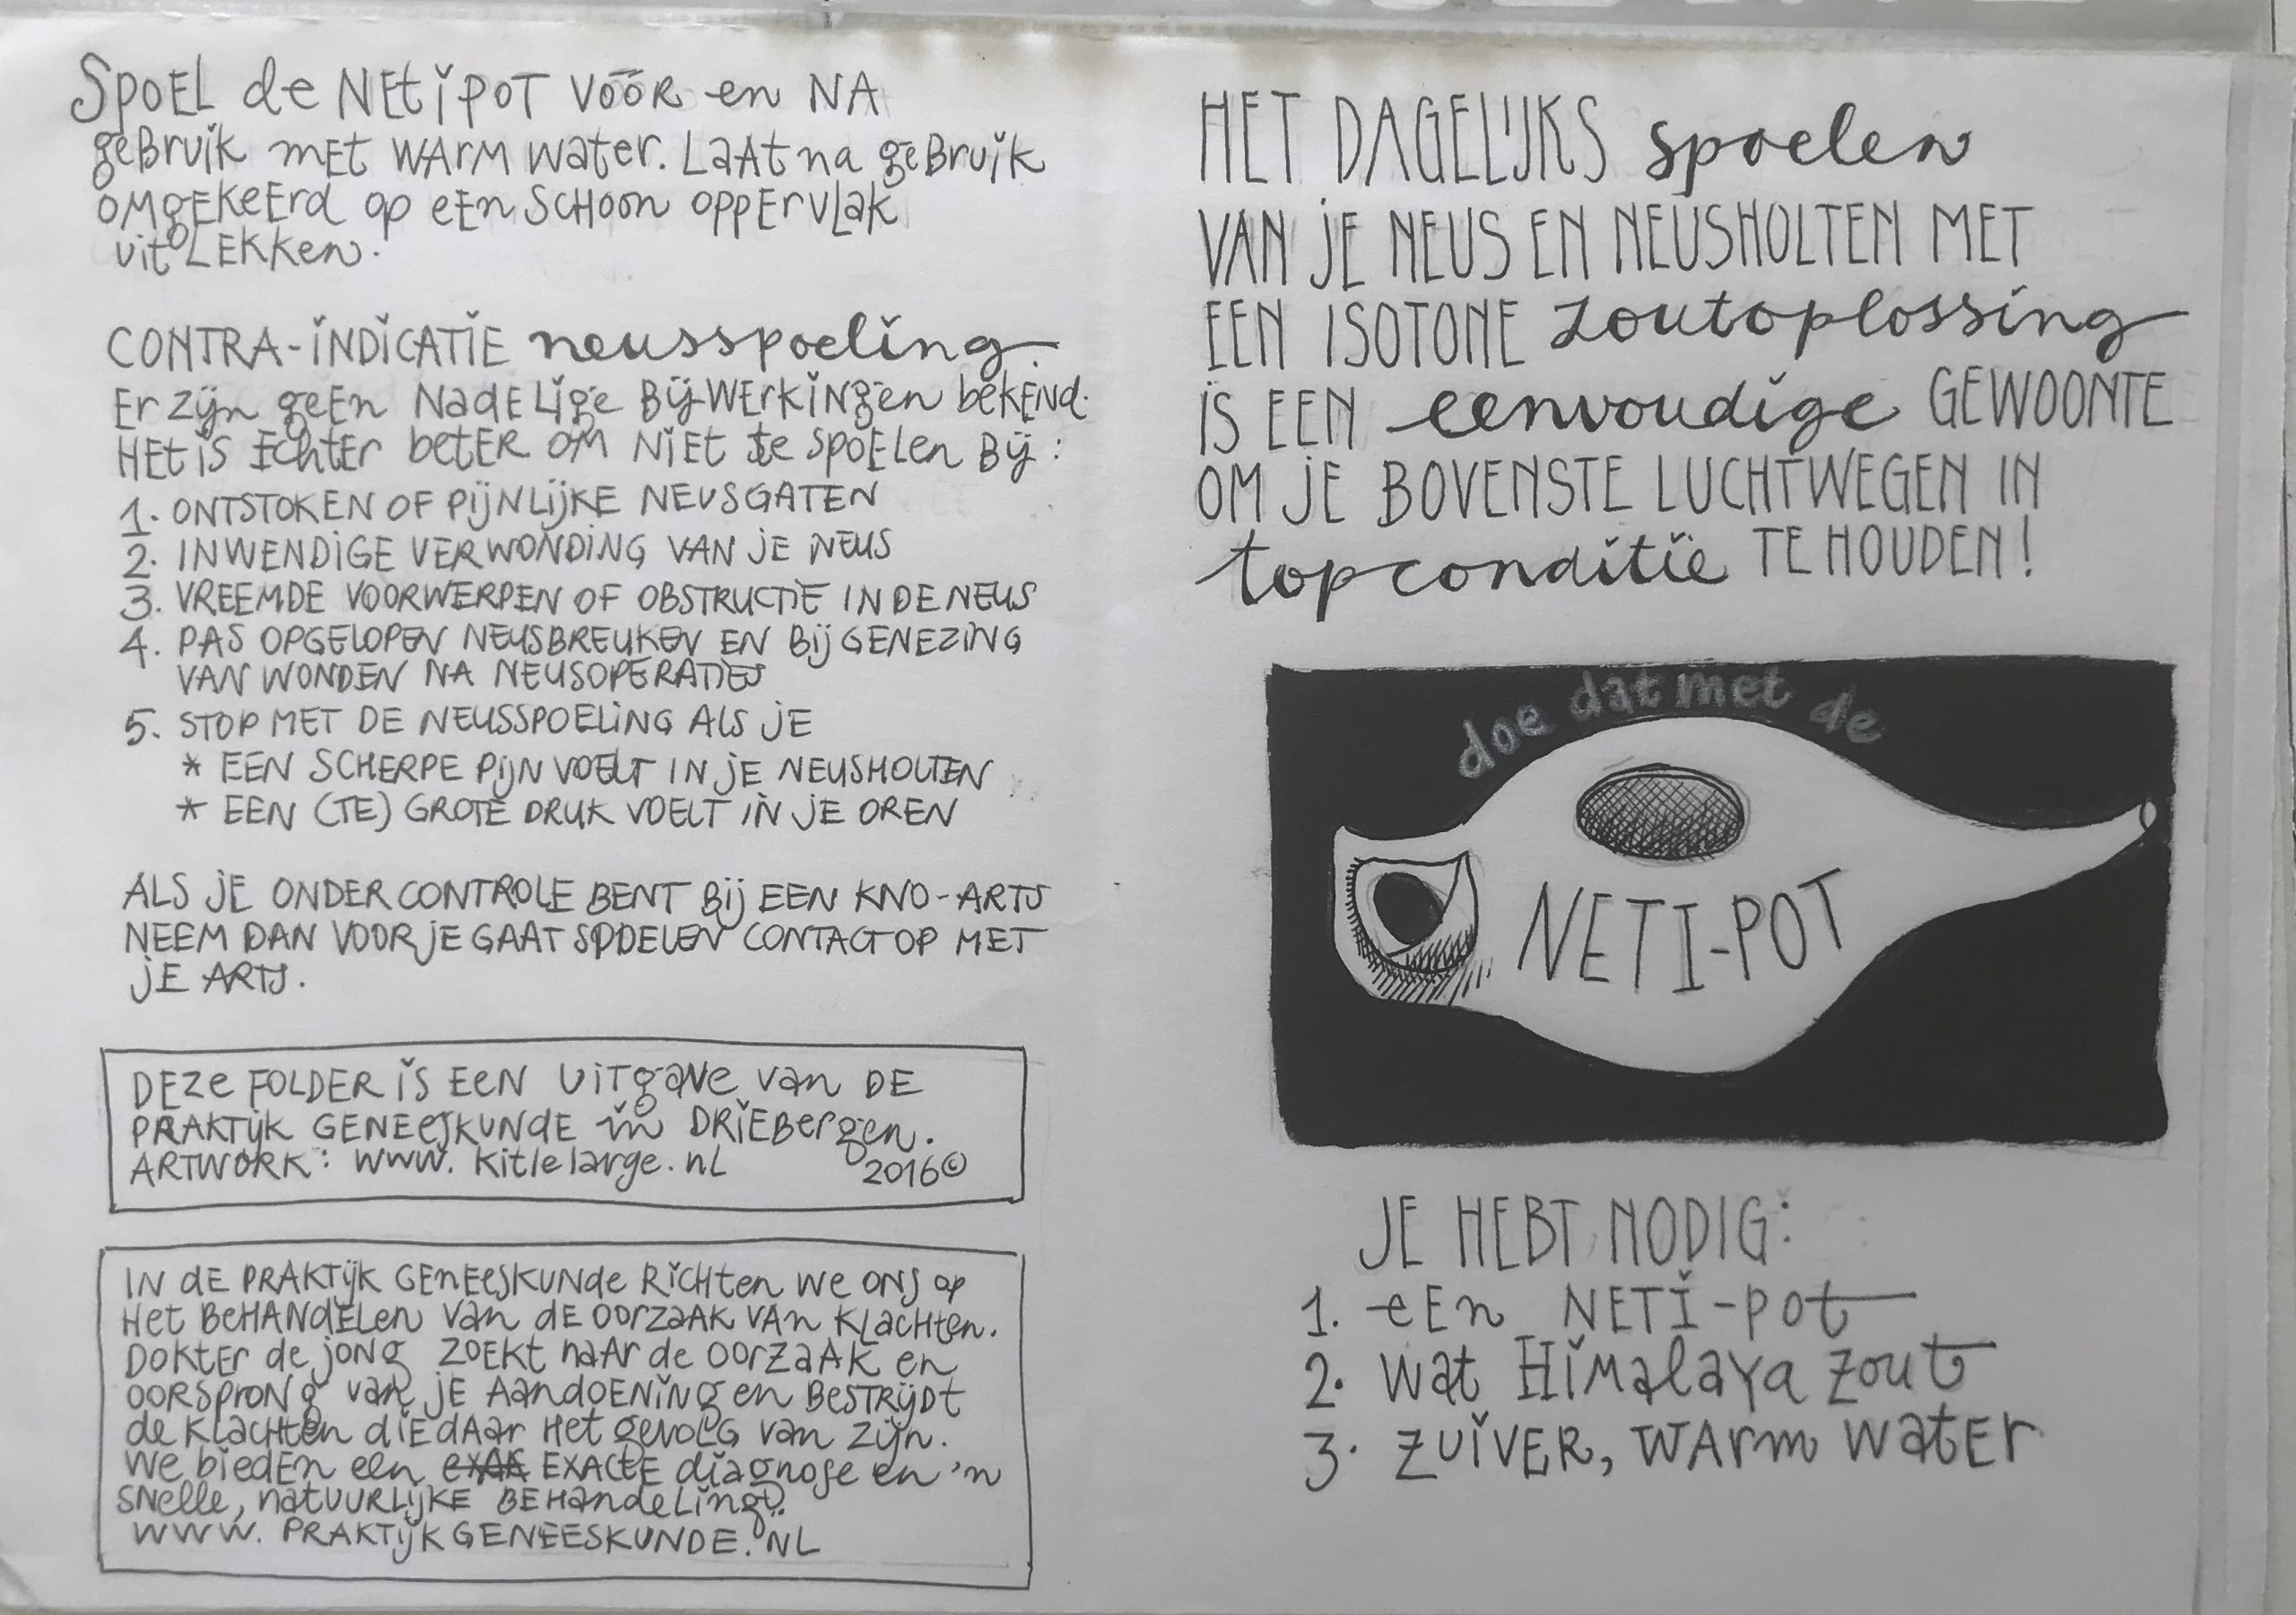 SPOEL de NETIPOT VÓÓR en NA
gebruik met warm water. Laat na gebruik
omgekeerd op een schoon oppervlak
uitlekken.
CONTRA-INDICATIE neusspoeling.
Er zijn geen nadelige bijwerkingen bekend.
Het is echter beter om niet te spoelen bij:
1. ONTSTOKEN OF PIJNLIJKE NEUSGATEN
2. INWENDIGE VERWONDING VAN JE NEUS
3. VREEMDE VOORWERPEN OF OBSTRUCTIE IN DE NEUS
4. PAS OPGELOPEN NEUSBREUKEN EN BIJ GENEZING
VAN WONDEN NA NEUSOPERATIES
5. STOP MET DE NEUSSPOELING ALS JE
* EEN SCHERPE PIJN VOELT IN JE NEUSHOLTEN
* EEN (TE) GROTE DRUK VOELT IN JE OREN
ALS JE ONDER CONTROLE BENT BIJ EEN KNO-ARTS
NEEM DAN VOOR JE GAAT SPOELEN CONTACT OP MET
JE ARTS.
Deze FOLDER is een uitgave van DE
PRAKTIJK GENEESKUNDE in DRIEBERGEN.
ARTWORK: www.kitlelarge.nl 2016©
IN de PRAKTIJK GENEESKUNDE RICHTEN we ons op
Het BEHANDELEN van de oorzaak van klachten.
Dokter de jong zoekt naar de oorzaak en
oorsprong van je aandoening en bestrijdt
de klachten die daar het gevolg van zijn.
We bieden een EXACTE diagnose en 'n
snelle, natuurlijke BEHANDELING!
WWW.PRAKTIJKGENEESKUNDE.NL
HET DAGELIJKS spoelen
VAN JE NEUS EN NEUSHOLTEN MET
EEN ISOTONE zoutoplossing
IS EEN eenvoudige GEWOONTE
OM JE BOVENSTE LUCHTWEGEN IN
topconditie TE HOUDEN!
doe dat met de
NETI-POT
JE HEBT NODIG:
1. een NETI-pot
2. wat Himalaya zout
3. ZUIVER, warm water